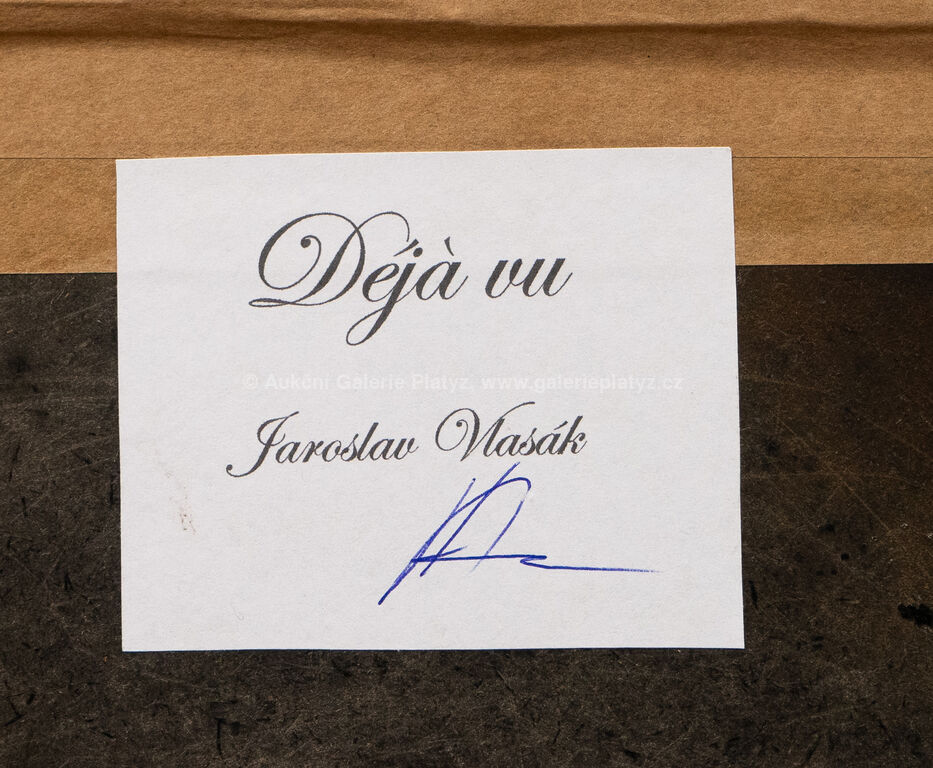 Déjà vu
© Aukční Galerie Platyz, www.galerieplatyz.cz
Jaroslav Vlasák